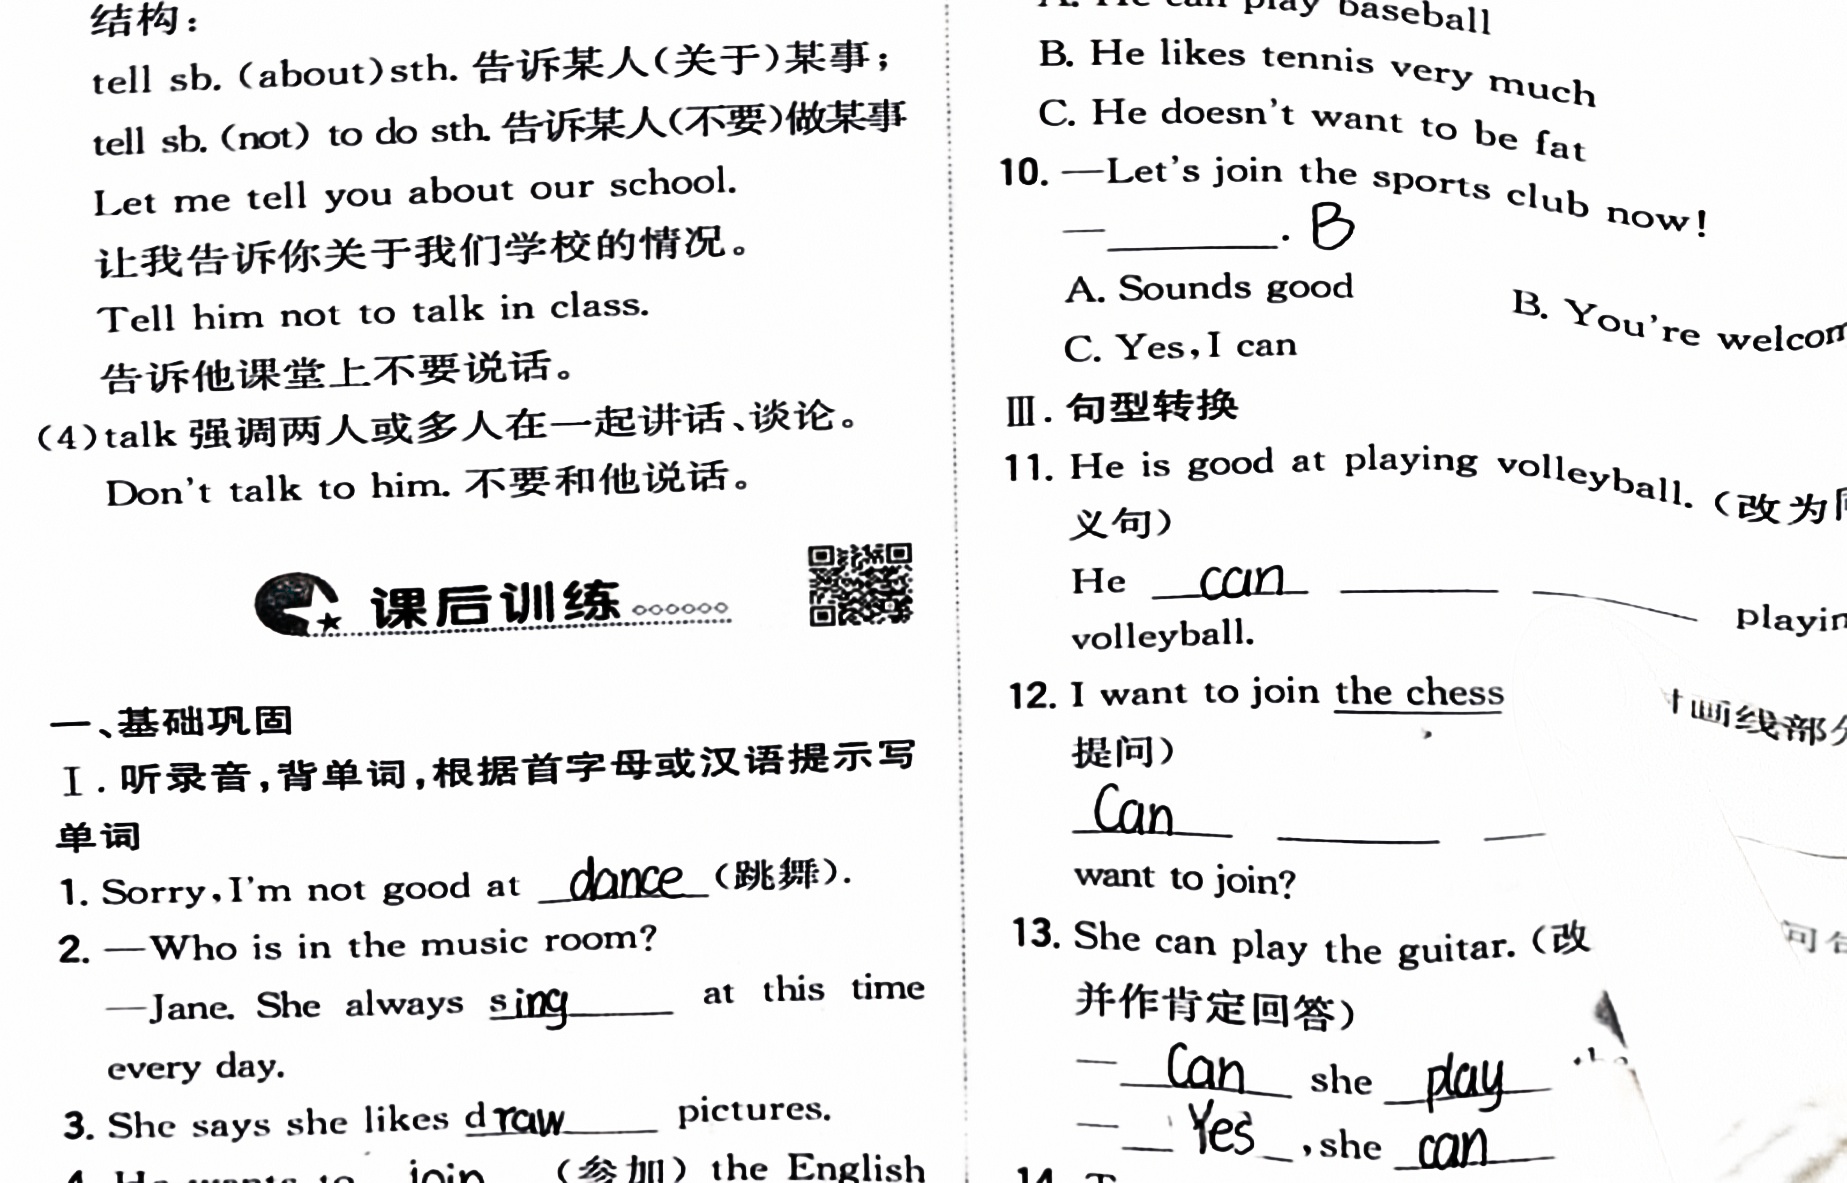 结构：
tell sb. (about)sth. 告诉某人(关于)某事；
tell sb. (not) to do sth. 告诉某人(不要)做某事
Let me tell you about our school.
让我告诉你关于我们学校的情况。
Tell him not to talk in class.
告诉他课堂上不要说话。
(4)talk 强调两人或多人在一起讲话、谈论。
Don't talk to him. 不要和他说话。
课后训练
一、基础巩固
Ⅰ. 听录音,背单词,根据首字母或汉语提示写
单词
1. Sorry, I'm not good at dance (跳舞).
2. —Who is in the music room?
—Jane. She always sing at this time
every day.
3. She says she likes draw pictures.
4. He wants to join (参加) the English
A. He can play baseball
B. He likes tennis very much
C. He doesn't want to be fat
10. —Let's join the sports club now!
—________. B
A. Sounds good B. You're
C. Yes, I can
Ⅲ. 句型转换
11. He is good at playing volleyball. (改为
义句)
He can ________ ________
volleyball.
12. I want to join the chess 画线部
提问)
Can ________ ____
want to join?
13. She can play the guitar. (改
并作肯定回答)
— Can she play
— Yes , she can
14.